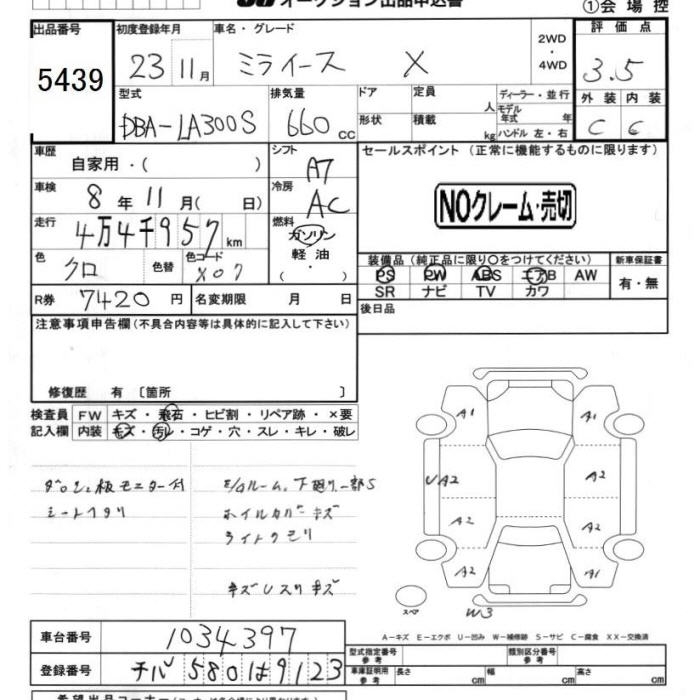 オークション出品申込書
①会場控
出品番号 初度登録年月 車名・グレード 2WD・4WD 評価点
5439 23 11月 ミライース X 3.5
型式 排気量 ドア 定員 人 ディーラー・並行 外装 内装
DBA-LA300S 660 CC 形状 積載 kg モデル年式 年 ハンドル 左・右 C C
車歴 自家用・( ) シフト A7 セールスポイント (正常に機能するものに限ります)
車検 8年 11月( 日) 冷房 AC NOクレーム・売切
走行 4万4千957km 燃料 ガソリン・軽油・( )
色 クロ 色替 色コード X07
装備品(純正品に限り〇をつけてください) 新車保証書
PS PW ABS エアB AW 有・無
SR ナビ TV カワ
R券 7420円 名変期限 月 日 後日品
注意事項申告欄(不具合内容等は具体的に記入して下さい)
修復歴 有〔箇所 〕
検査員 FW キズ・飛石・ヒビ割・リペア跡・×要
記入欄 内装 キズ・汚レ・コゲ・穴・スレ・キレ・破レ
下廻り一部S
シートヘタリ ホイルカバーキズ
ライトクモリ
キズUスリキズ
A1 A1
UA2 A2
A2 A2
A2 A1
スペア W3
A-キズ E-エクボ U-凹み W-補修跡 S-サビ C-腐食 XX-交換済
車台番号 1034397 型式指定番号 参考 類別区分番号 参考
登録番号 チバ 580 は 9123 車庫証明用 参考 長さ cm 幅 cm 高さ cm
希望出品コーナー